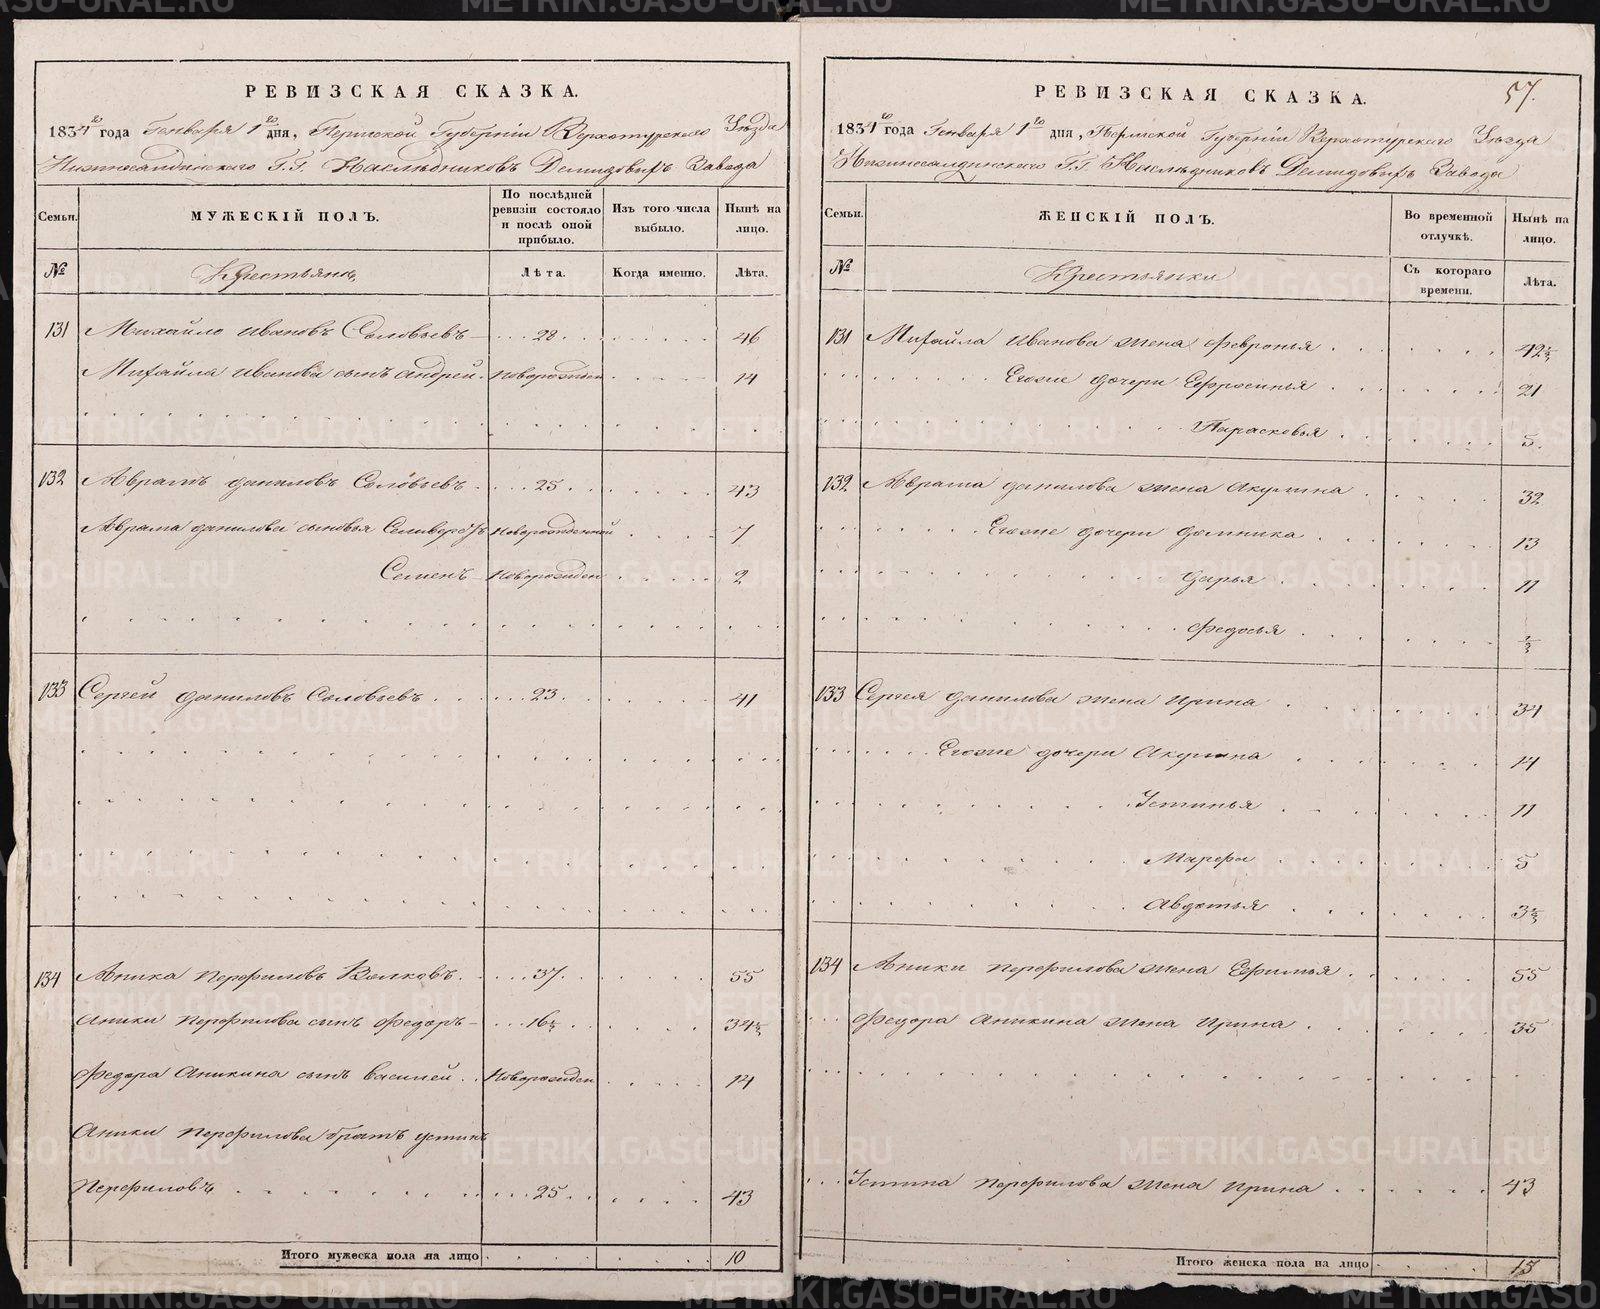 РЕВИЗСКАЯ СКАЗКА.
1834го года Генваря 1го дня, Пермской Губерніи Верхотурского Уѣзда
Нижнесалдинского Г.Г. Наслѣдниковъ Демидовыхъ Завода
Семьи.
МУЖЕСКІЙ ПОЛЪ.
По послѣдней ревизіи состояло и послѣ оной прибыло.
Изъ того числа выбыло.
Нынѣ на лицо.
№
Крестьяне
Лѣта.
Когда именно.
Лѣта.
131 Михайло Ивановъ Соловьевъ 28 46
Михайла Иванова сынъ Андрей новорожден 14
132 Аврамъ Даниловъ Соловьевъ 25 43
Аврама Данилова сыновья Селиверстъ новорожденной 7
Семенъ новорожден 2
133 Сергей Даниловъ Соловьевъ 23 41
134 Аника Перфиловъ Волковъ 37 55
Аники Перфилова сынъ Федоръ 16½ 34½
Федора Аникина сынъ Василей новорожден 14
Аники Перфилова братъ Устинъ
Перфиловъ 25 43
Итого мужеска пола на лицо 10
57.
РЕВИЗСКАЯ СКАЗКА.
1834го года Генваря 1го дня, Пермской Губерніи Верхотурского Уѣзда
Нижнесалдинского Г.Г. Наслѣдниковъ Демидовыхъ Завода
Семьи.
ЖЕНСКІЙ ПОЛЪ.
Во временной отлучкѣ.
Нынѣ на лицо.
№
Крестьянки
Съ котораго времени.
Лѣта.
131 Михайла Иванова жена Февронья 42½
Егоже дочери Ефросинья 21
Парасковья 5
132 Аврама Данилова жена Акулина 32
Егоже дочери Домника 13
Дарья 11
Федосья ½
133 Сергея Данилова жена Ирина 34
Егоже дочери Акулина 14
Устинья 11
Марфа 5
Авдотья 3½
134 Аники Перфилова жена Ефимья 55
Федора Аникина жена Ирина 35
Устина Перфилова жена Ирина 43
Итого женска пола на лицо 15
METRIKI.GASO-URAL.RU